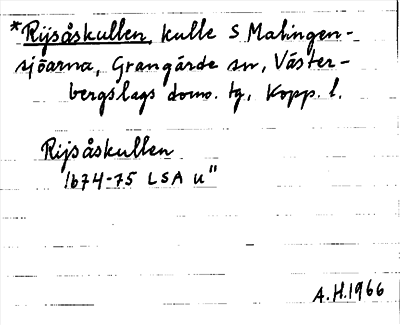 *Rijsåskullen, kulle S Malingen-
sjöarna, Grangärde sn, Väster-
bergslags doms. tg, Kopp. l.
Rijsåskullen
1674-75 LSA u"
A.H.1966